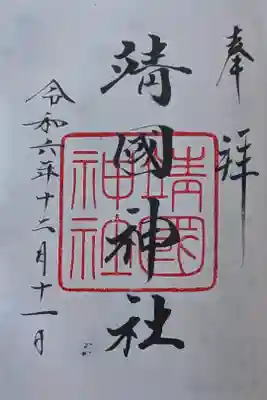 奉拝
靖國神社
靖國神社
令和六年十二月十一日